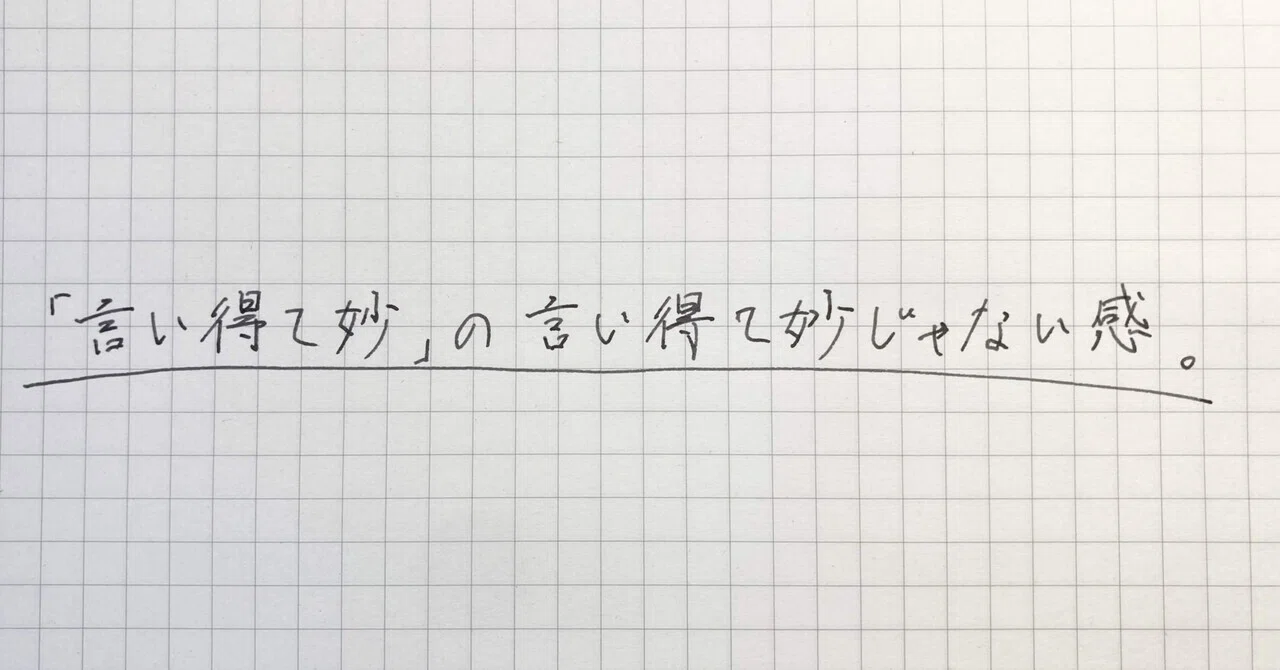 「言い得て妙」の言い得て妙じゃない感。